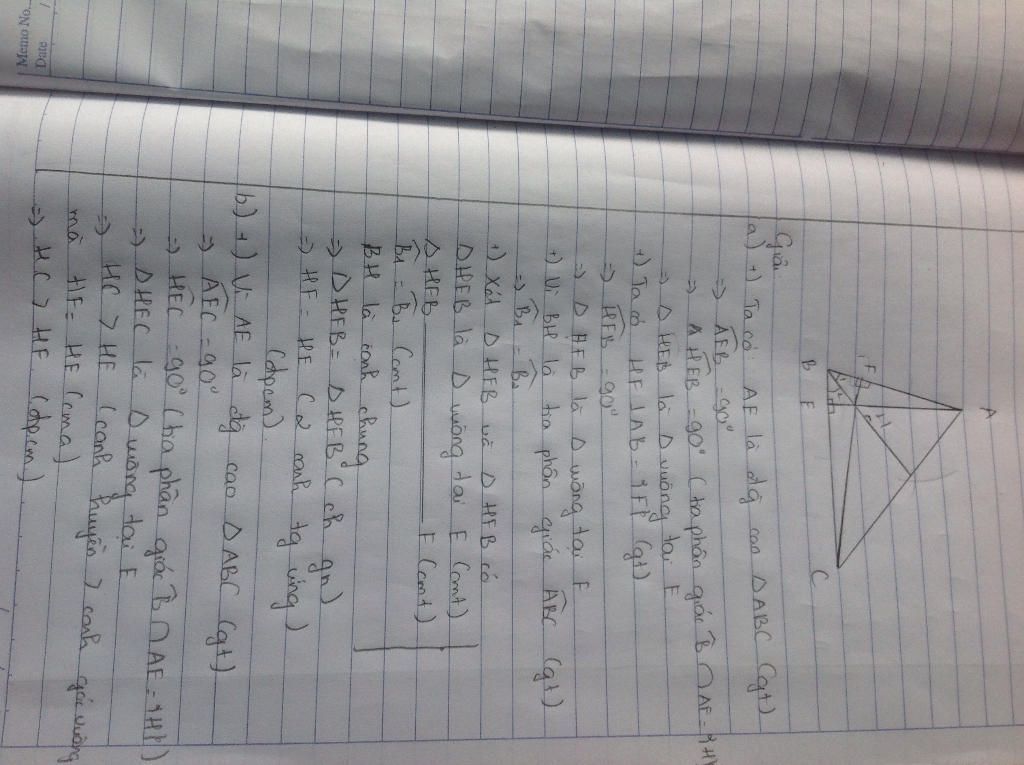 Memo No.
Date / /
A
F
H
B
E
C
Giải
a) +) Ta có: AE là đg cao ΔABC (gt)
=> AEB = 90°
=> HEB = 90° (tia phân giác B ∩ AE = {H})
=> ΔHEB là Δ vuông tại E
+) Ta có HF ⊥ AB = {F} (gt)
=> HFB = 90°
=> ΔHFB là Δ vuông tại F
+) Vì BH là tia phân giác ABC (gt)
=> B1 = B2
+) Xét ΔHEB và ΔHFB có
ΔHEB là Δ vuông tại E (cmt)
ΔHFB ———— F (cmt)
B1 = B2 (cmt)
BH là cạnh chung
=> ΔHEB = ΔHFB (ch gn)
=> HF = HE (2 cạnh tg ứng)
(đpcm)
b) +) Vì AE là đg cao ΔABC (gt)
=> AEC = 90°
=> HEC = 90° (tia phân giác B ∩ AE = {H})
=> ΔHEC là Δ vuông tại E
=> HC > HE (cạnh huyền > cạnh góc vuông
mà HF = HE (cma)
=> HC > HF (đpcm)